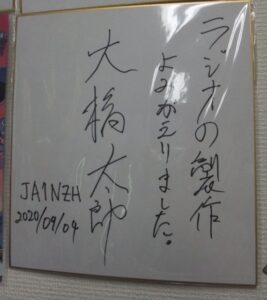 ラジオの製作
よみがえりました。
大橋太郎
JA1NZH
2020/09/04